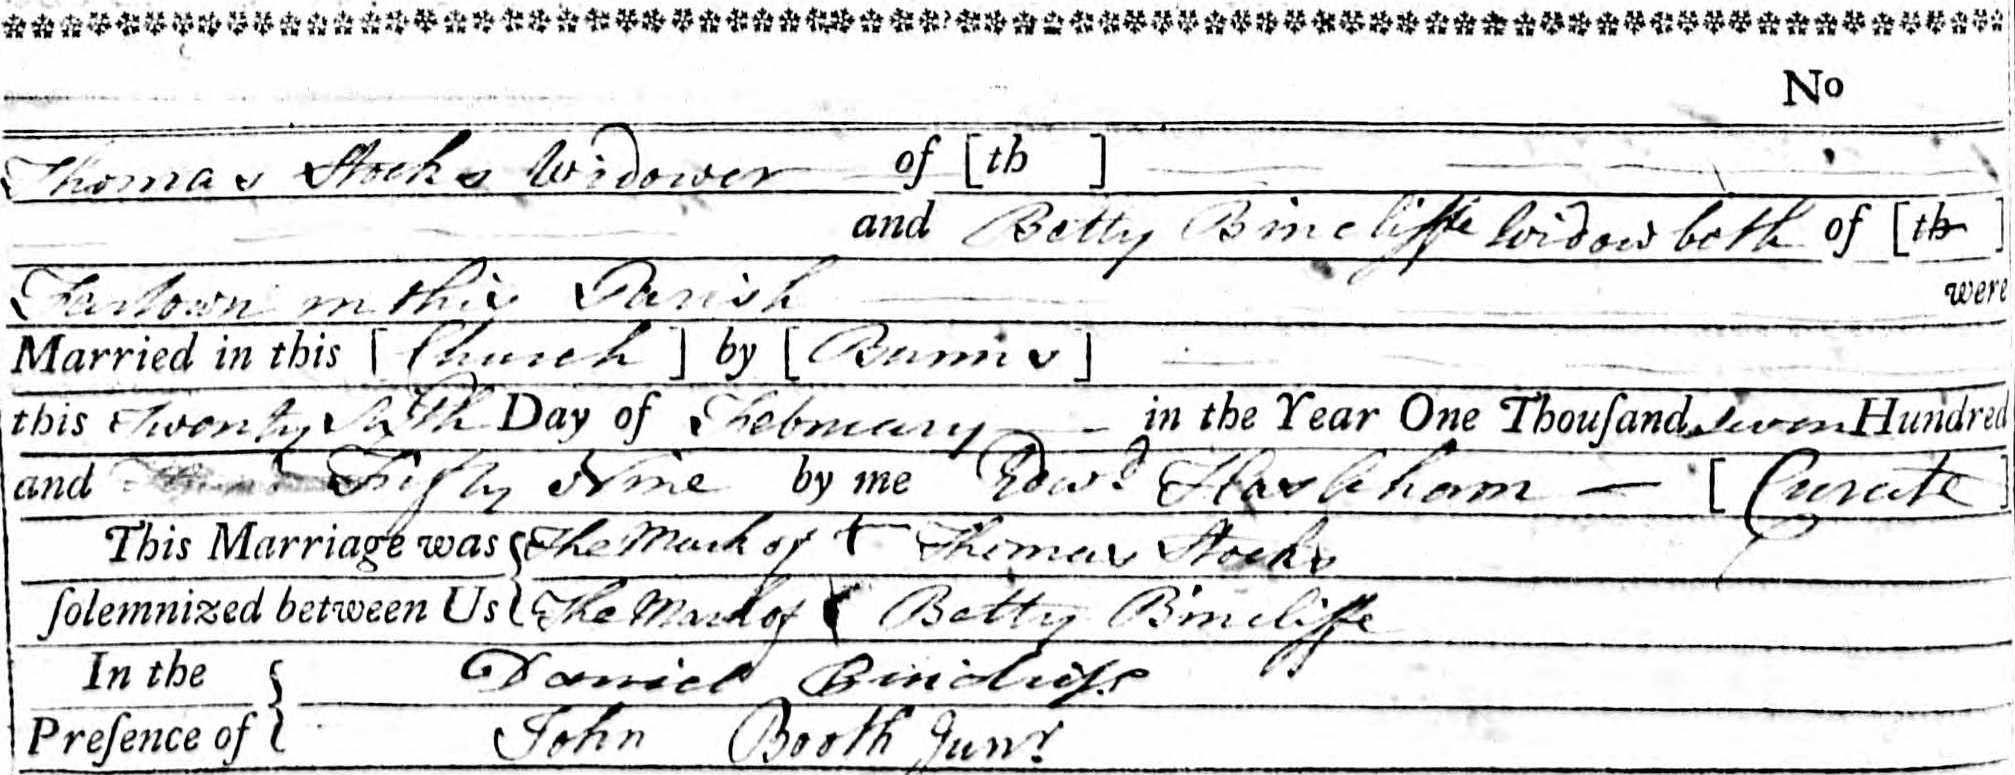 No
Thomas Stocks Widower of [th ]
and Betty Bincliffe Widow both of [th ]
Fartown in this Parish were
Married in this [ Church ] by [ Banns ]
this Twenty Sixth Day of February in the Year One Thouſand seven Hundred
and Fifty Nine by me Edwd. Hasleham [ Curate ]
This Marriage was { The Mark of + Thomas Stocks
ſolemnized between Us { The Mark of + Betty Bincliffe
In the { Daniel Bincliffe
Preſence of { John Booth Junr.